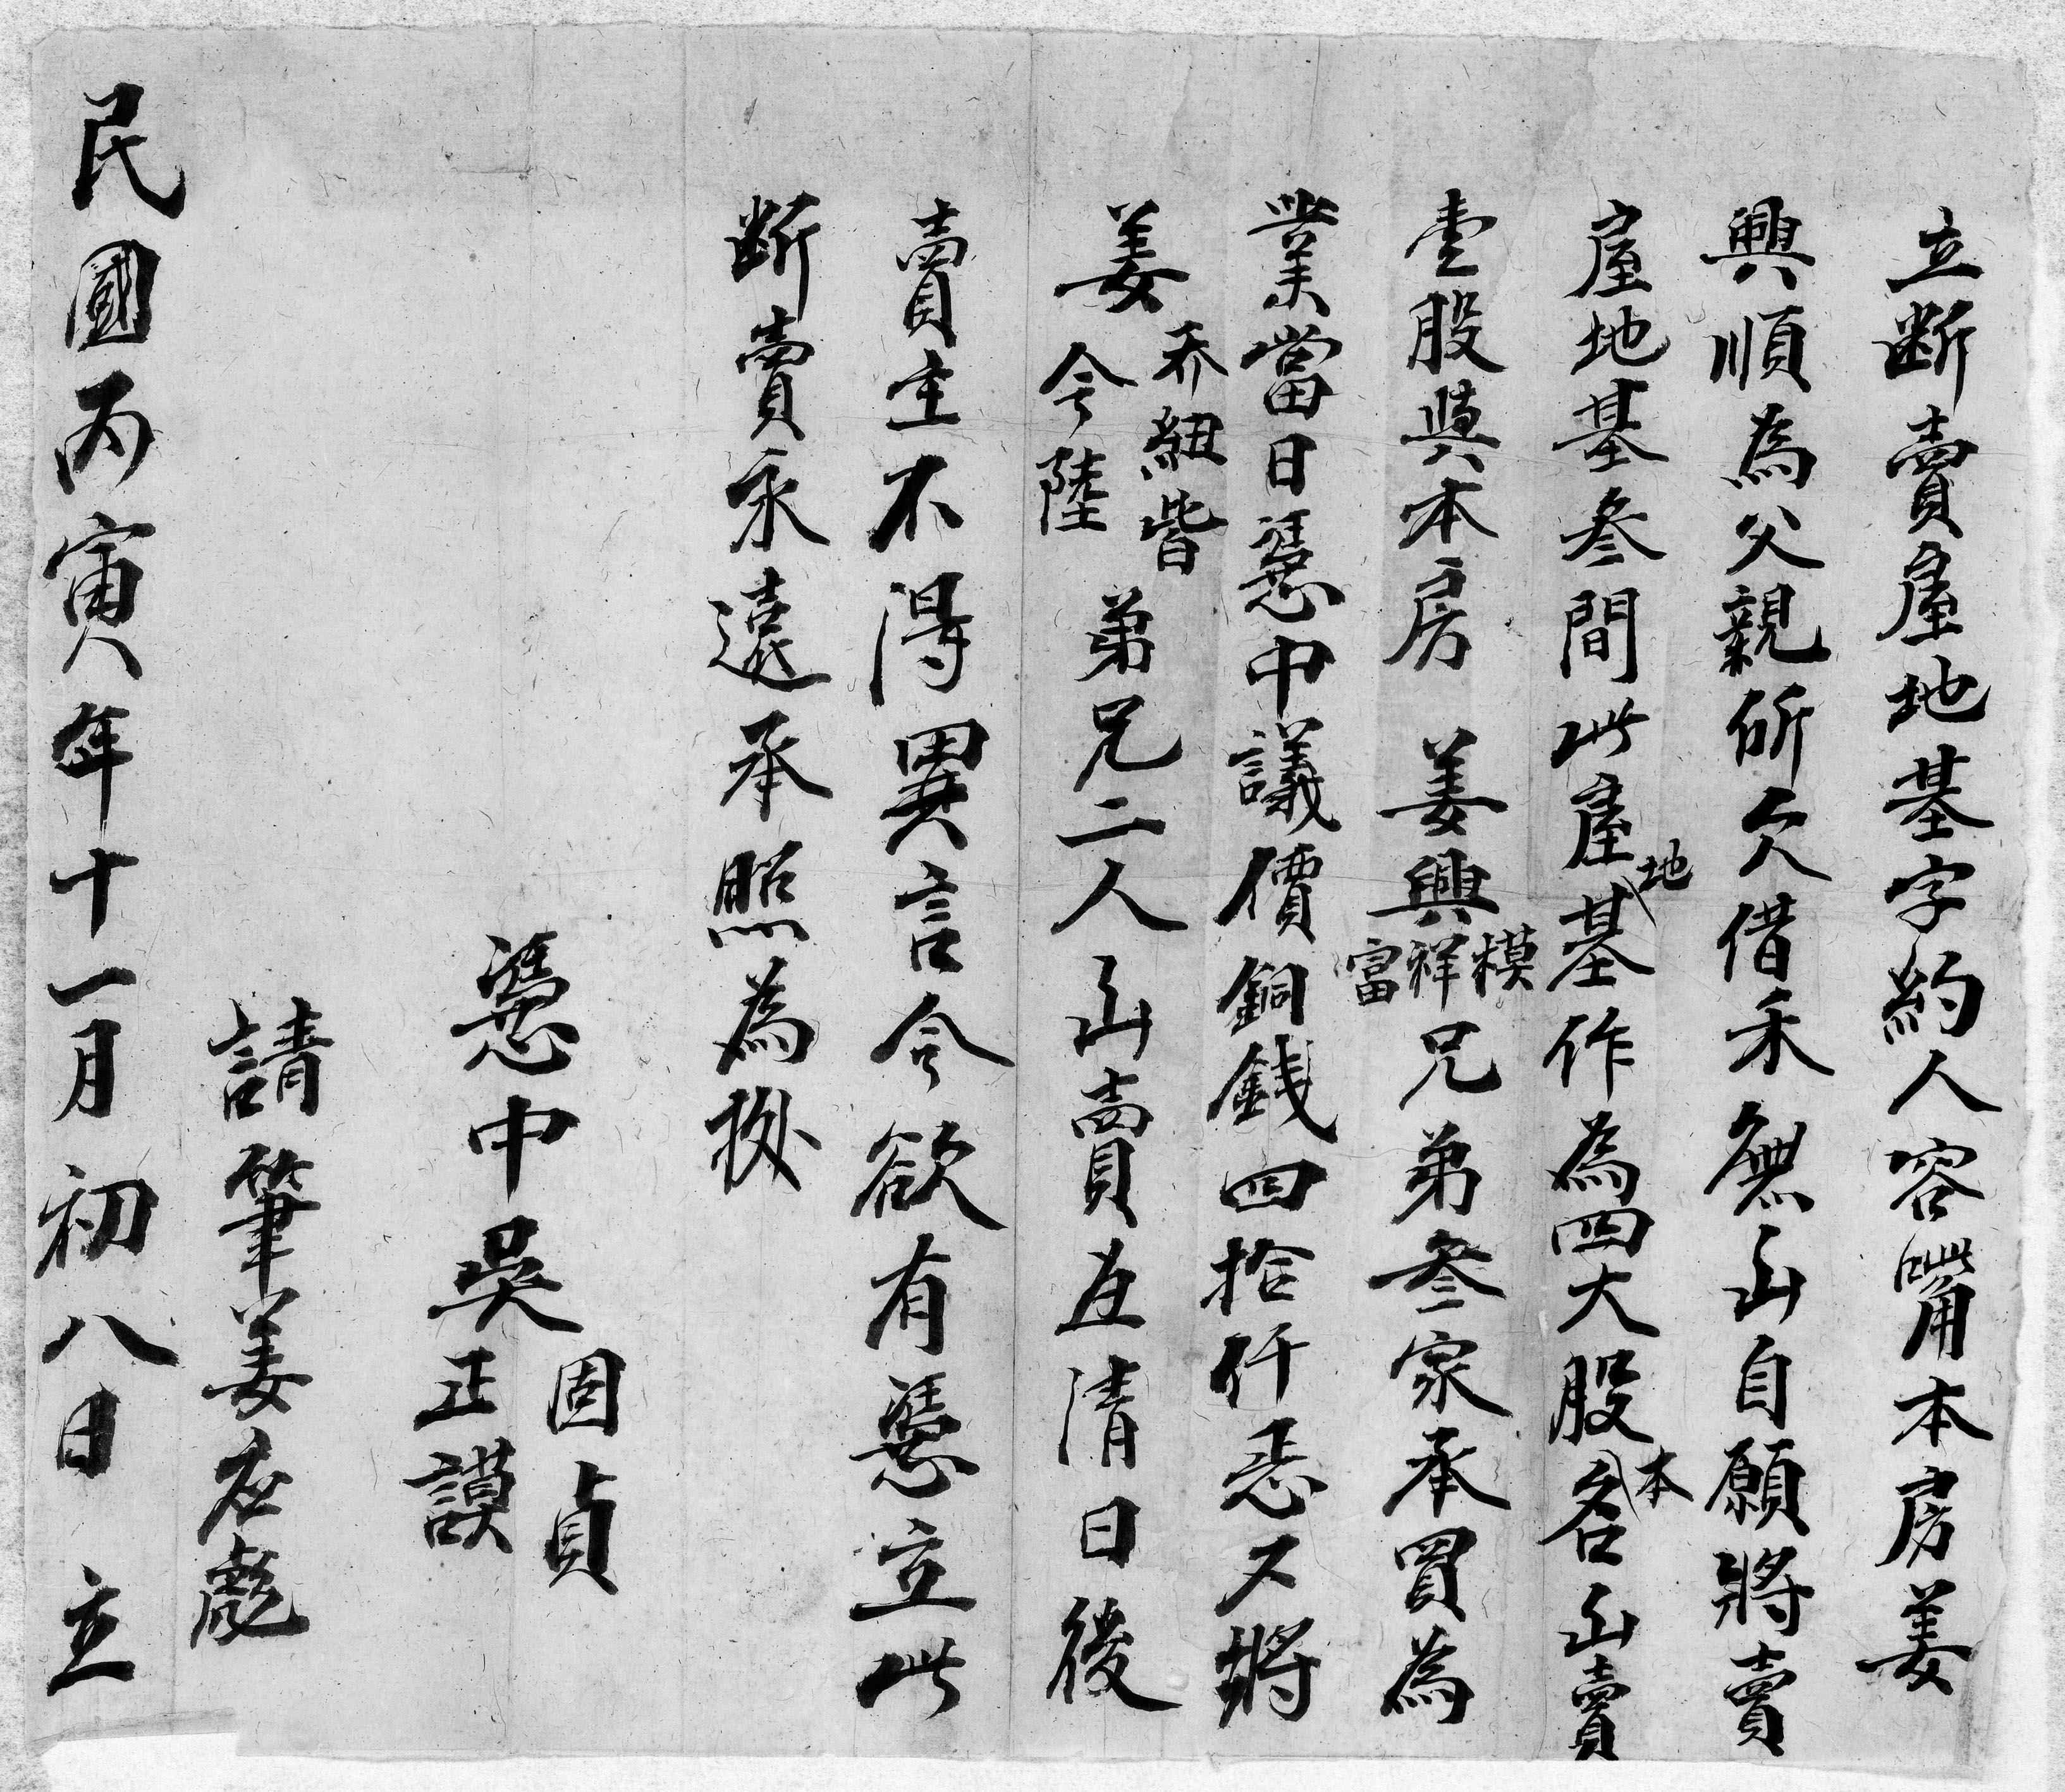 立断賣屋地基字約人容嘴本房姜
興順為父親所欠借禾無出自願將賣
屋地基叁間此屋地基作為四大股本名出賣
壹股與本房 姜興模祥富兄弟叁家承買為
業當日憑中議價銅錢四拾仟 又將
姜喬紐皆今陸弟兄二人出賣 清日後
賣主不得異言今欲有憑立此
断賣永遠承照為拠
憑中吳固貞正謨
請筆姜在彪
民國丙寅年十一月初八日 立